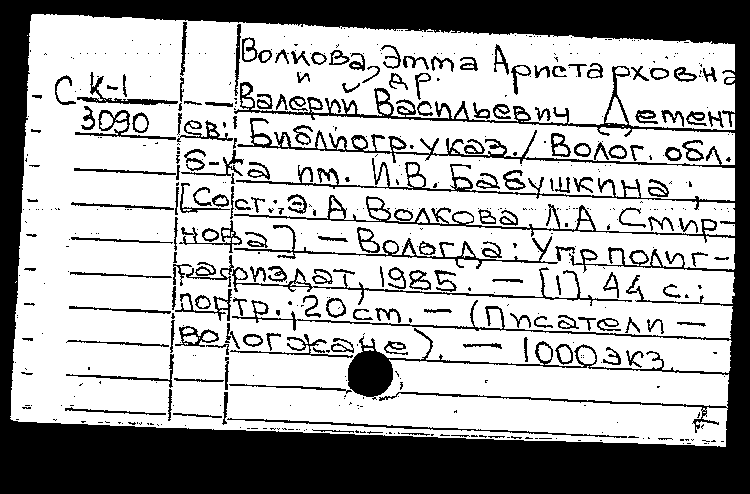 Волкова, Этта Аристарховна
и др.
С К-1
3090
Валерий Васильевич Демент
ев: Библиогр. указ. / Волог. обл.
б-ка им. И.В. Бабушкина ;
[Сост.: Э.А. Волкова, Л.А. Смир-
нова]. — Вологда : Упрполиг-
рафиздат, 1985. — [1], 44 с. :
портр. ; 20 см. — (Писатели —
вологжане). — 1000 экз.